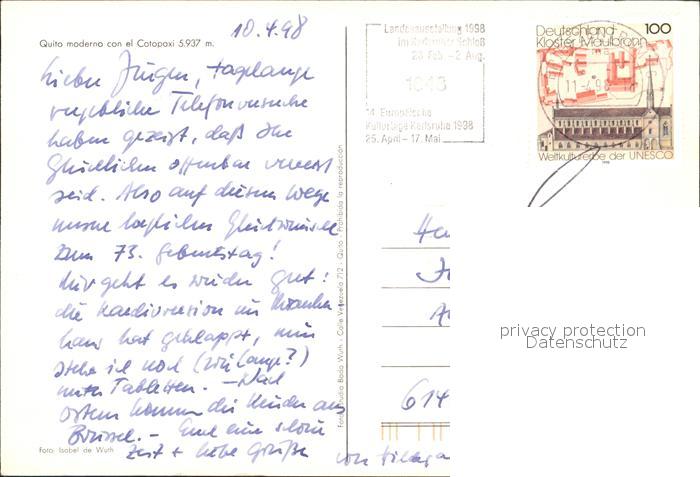 10.4.98
Quito moderno con el Cotopaxi 5.937 m.
Lieber Jürgen, tagelange
vergebliche Telefonversuche
haben gezeigt, daß Ihr
Glücklichen offenbar verreist
seid. Also auf diesem Wege
meine herzlichen Glückwünsche
zum 73. Geburtstag!
Mir geht es wieder gut:
die Kardioversion im Kranken
haus hat geklappt, nun
stehe ich noch (wie lange?)
unter Tabletten. – Nach
Ostern kommen die Kinder aus
Brüssel. – Euch eine schöne
Zeit + liebe Grüße
von
Foto: Isabel de Wuth
Foto Studio Bodo Wuth - Calle Venezuela 712 - Quito - Prohibida la reproducción
Landesausstellung 1998
im Karlsruher Schloß
28. Feb. - 2. Aug.
1848
14. Europäische
Kulturtage Karlsruhe 1998
25. April - 17. Mai
Deutschland 100
Kloster Maulbronn
Weltkulturerbe der UNESCO
1998
614
privacy protection
Datenschutz